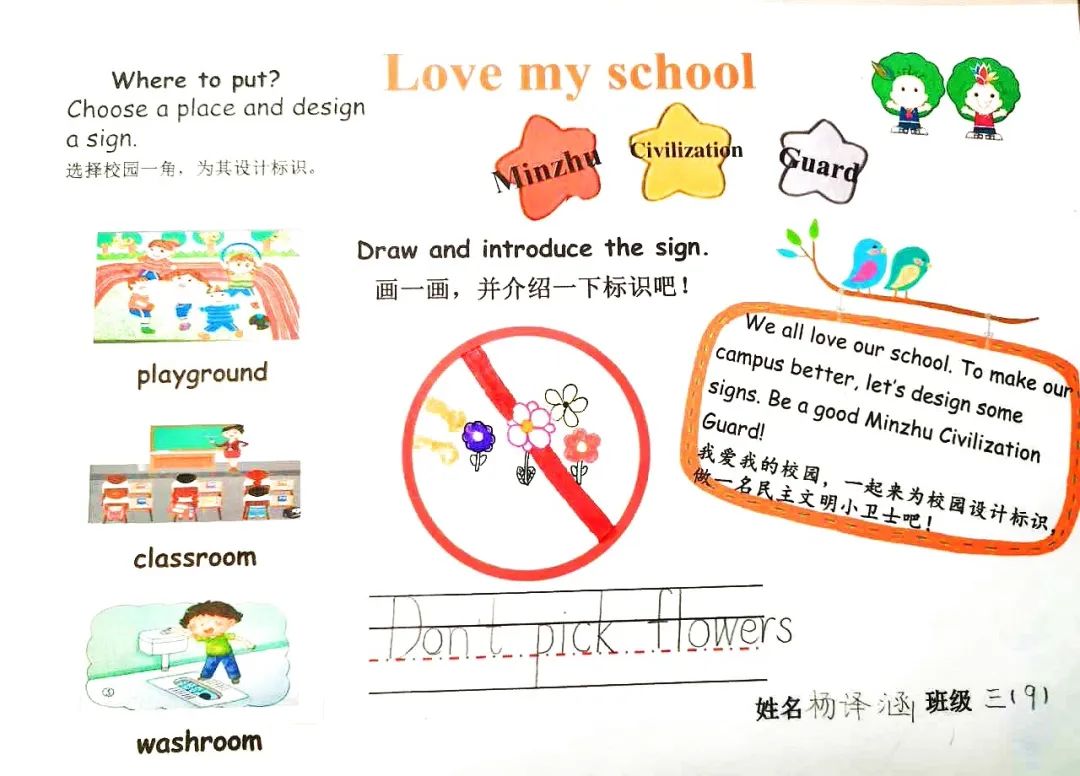 Love my school
Where to put?
Choose a place and design
a sign.
选择校园一角，为其设计标识。
Minzhu
Civilization
Guard
Draw and introduce the sign.
画一画，并介绍一下标识吧！
playground
classroom
washroom
We all love our school. To make our
campus better, let's design some
signs. Be a good Minzhu Civilization
Guard!
我爱我的校园，一起来为校园设计标识，
做一名民主文明小卫士吧！
Don't pick flowers
姓名 杨译涵 班级 三(9)